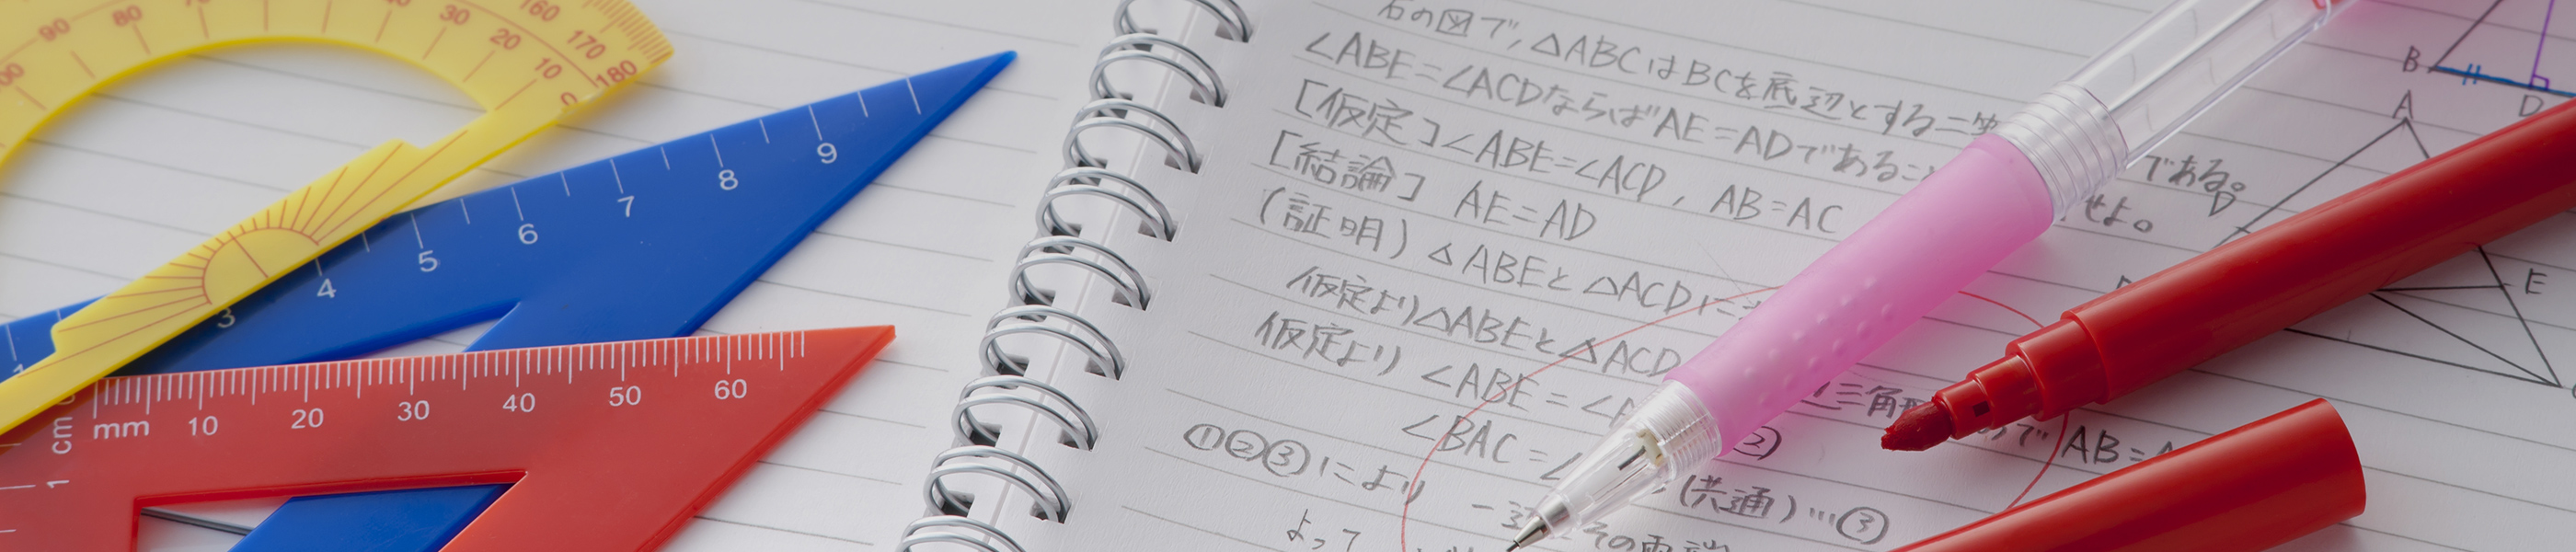 90 80 40 30 160
20 170
10 180
0
1 3 4 5 6 7 8 9
cm
mm 10 20 30 40 50 60
1
右の図で,△ABCはBCを底辺とする二等
である。
∠ABE=∠ACDならばAE=ADであるこ
せよ。
[仮定]∠ABE=∠ACD, AB=AC
[結論] AE=AD
(証明) △ABEと△ACDに
仮定より△ABEと△ACD
仮定より ∠ABE=∠A
三角形 ので AB=A
②
∠BAC=∠
(共通)…③
①②③により
その両端
よって
B
D
A
D
E